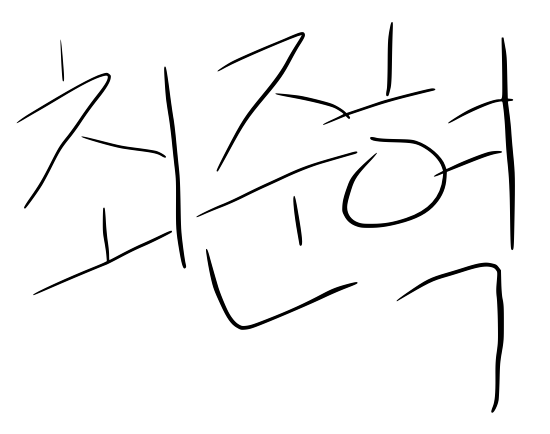 최준혁